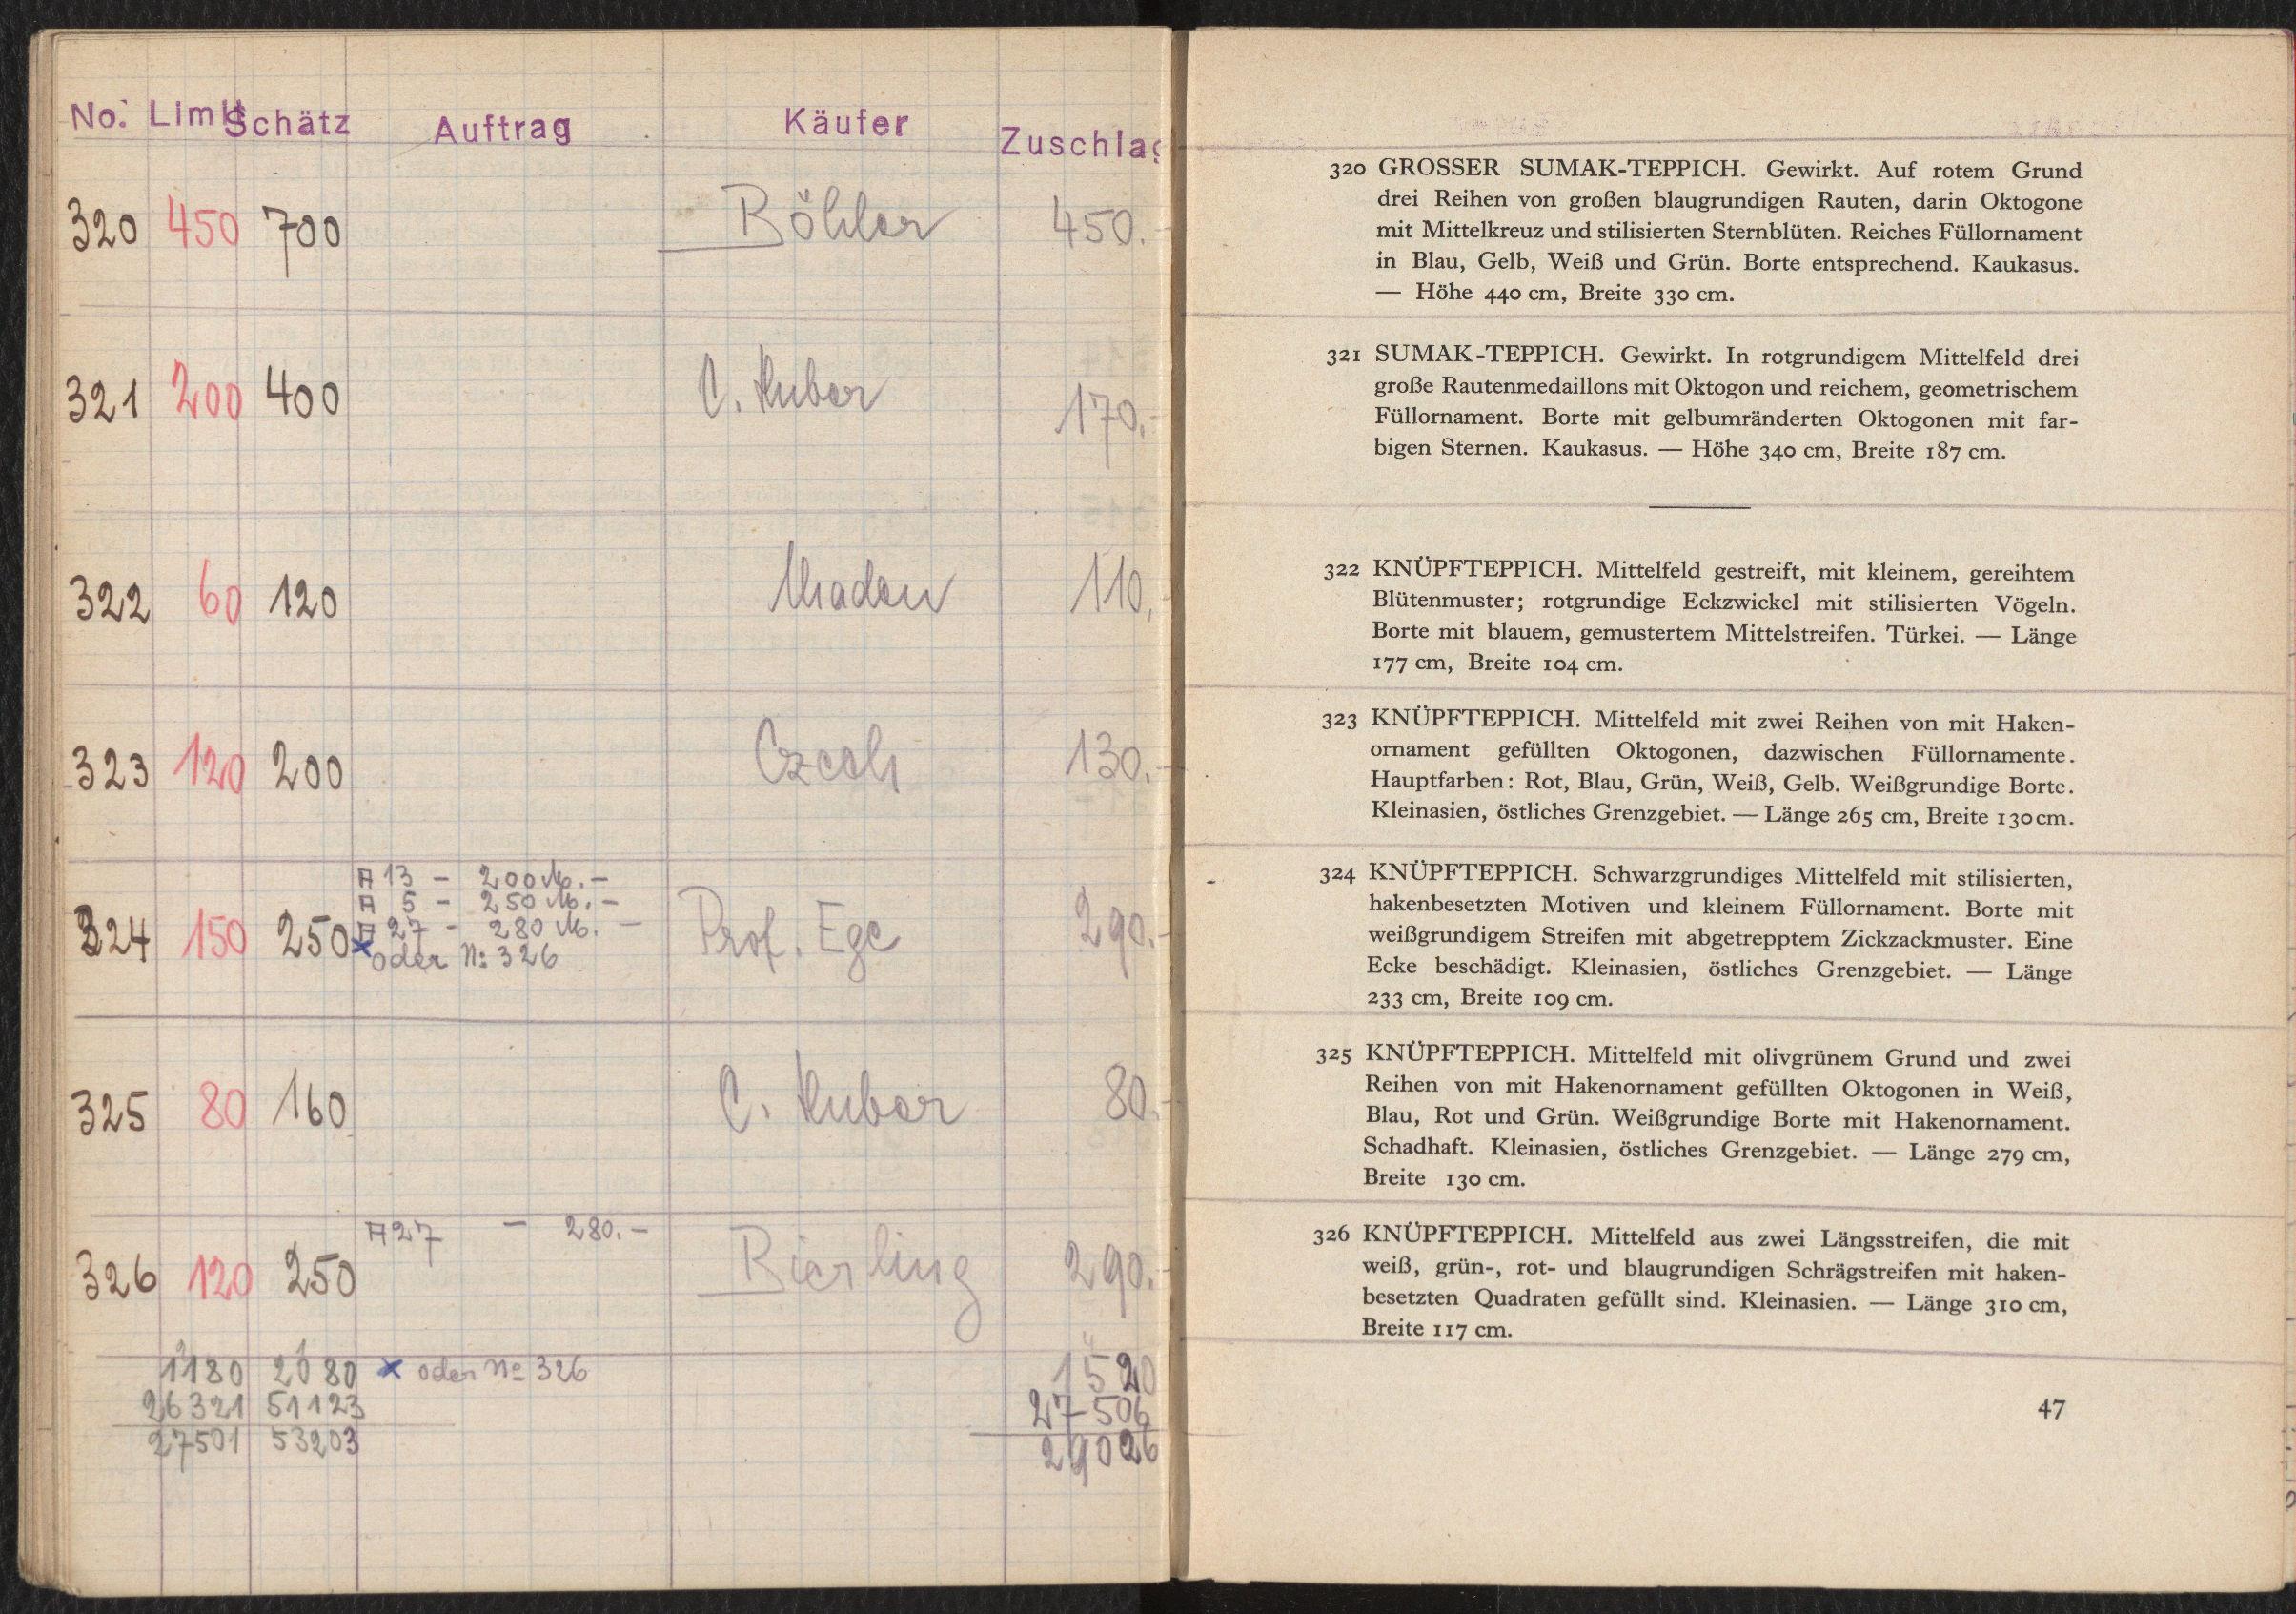 No. Limit Schätz Auftrag Käufer Zuschlag
320 450 700 Böhler 450.-
321 200 400 C. Huber 170.-
322 60 120 110.-
323 120 200 Czech 130.-
A 13 - 200 M. -
A 5 - 250 M. -
324 150 250 A 27 - 280 M. - Prof. Ege 290.-
x oder N: 326
325 80 160 C. Huber 80.-
A 27 - 280.-
326 120 250 Bierling 290.-
1180 2080 x oder No 326 1520
26321 51123 27506
27501 53203 29026
320 GROSSER SUMAK-TEPPICH. Gewirkt. Auf rotem Grund
drei Reihen von großen blaugrundigen Rauten, darin Oktogone
mit Mittelkreuz und stilisierten Sternblüten. Reiches Füllornament
in Blau, Gelb, Weiß und Grün. Borte entsprechend. Kaukasus.
— Höhe 440 cm, Breite 330 cm.
321 SUMAK-TEPPICH. Gewirkt. In rotgrundigem Mittelfeld drei
große Rautenmedaillons mit Oktogon und reichem, geometrischem
Füllornament. Borte mit gelbumränderten Oktogonen mit far-
bigen Sternen. Kaukasus. — Höhe 340 cm, Breite 187 cm.
322 KNÜPFTEPPICH. Mittelfeld gestreift, mit kleinem, gereihtem
Blütenmuster; rotgrundige Eckzwickel mit stilisierten Vögeln.
Borte mit blauem, gemustertem Mittelstreifen. Türkei. — Länge
177 cm, Breite 104 cm.
323 KNÜPFTEPPICH. Mittelfeld mit zwei Reihen von mit Haken-
ornament gefüllten Oktogonen, dazwischen Füllornamente.
Hauptfarben: Rot, Blau, Grün, Weiß, Gelb. Weißgrundige Borte.
Kleinasien, östliches Grenzgebiet. — Länge 265 cm, Breite 130 cm.
324 KNÜPFTEPPICH. Schwarzgrundiges Mittelfeld mit stilisierten,
hakenbesetzten Motiven und kleinem Füllornament. Borte mit
weißgrundigem Streifen mit abgetrepptem Zickzackmuster. Eine
Ecke beschädigt. Kleinasien, östliches Grenzgebiet. — Länge
233 cm, Breite 109 cm.
325 KNÜPFTEPPICH. Mittelfeld mit olivgrünem Grund und zwei
Reihen von mit Hakenornament gefüllten Oktogonen in Weiß,
Blau, Rot und Grün. Weißgrundige Borte mit Hakenornament.
Schadhaft. Kleinasien, östliches Grenzgebiet. — Länge 279 cm,
Breite 130 cm.
326 KNÜPFTEPPICH. Mittelfeld aus zwei Längsstreifen, die mit
weiß, grün-, rot- und blaugrundigen Schrägstreifen mit haken-
besetzten Quadraten gefüllt sind. Kleinasien. — Länge 310 cm,
Breite 117 cm.
47